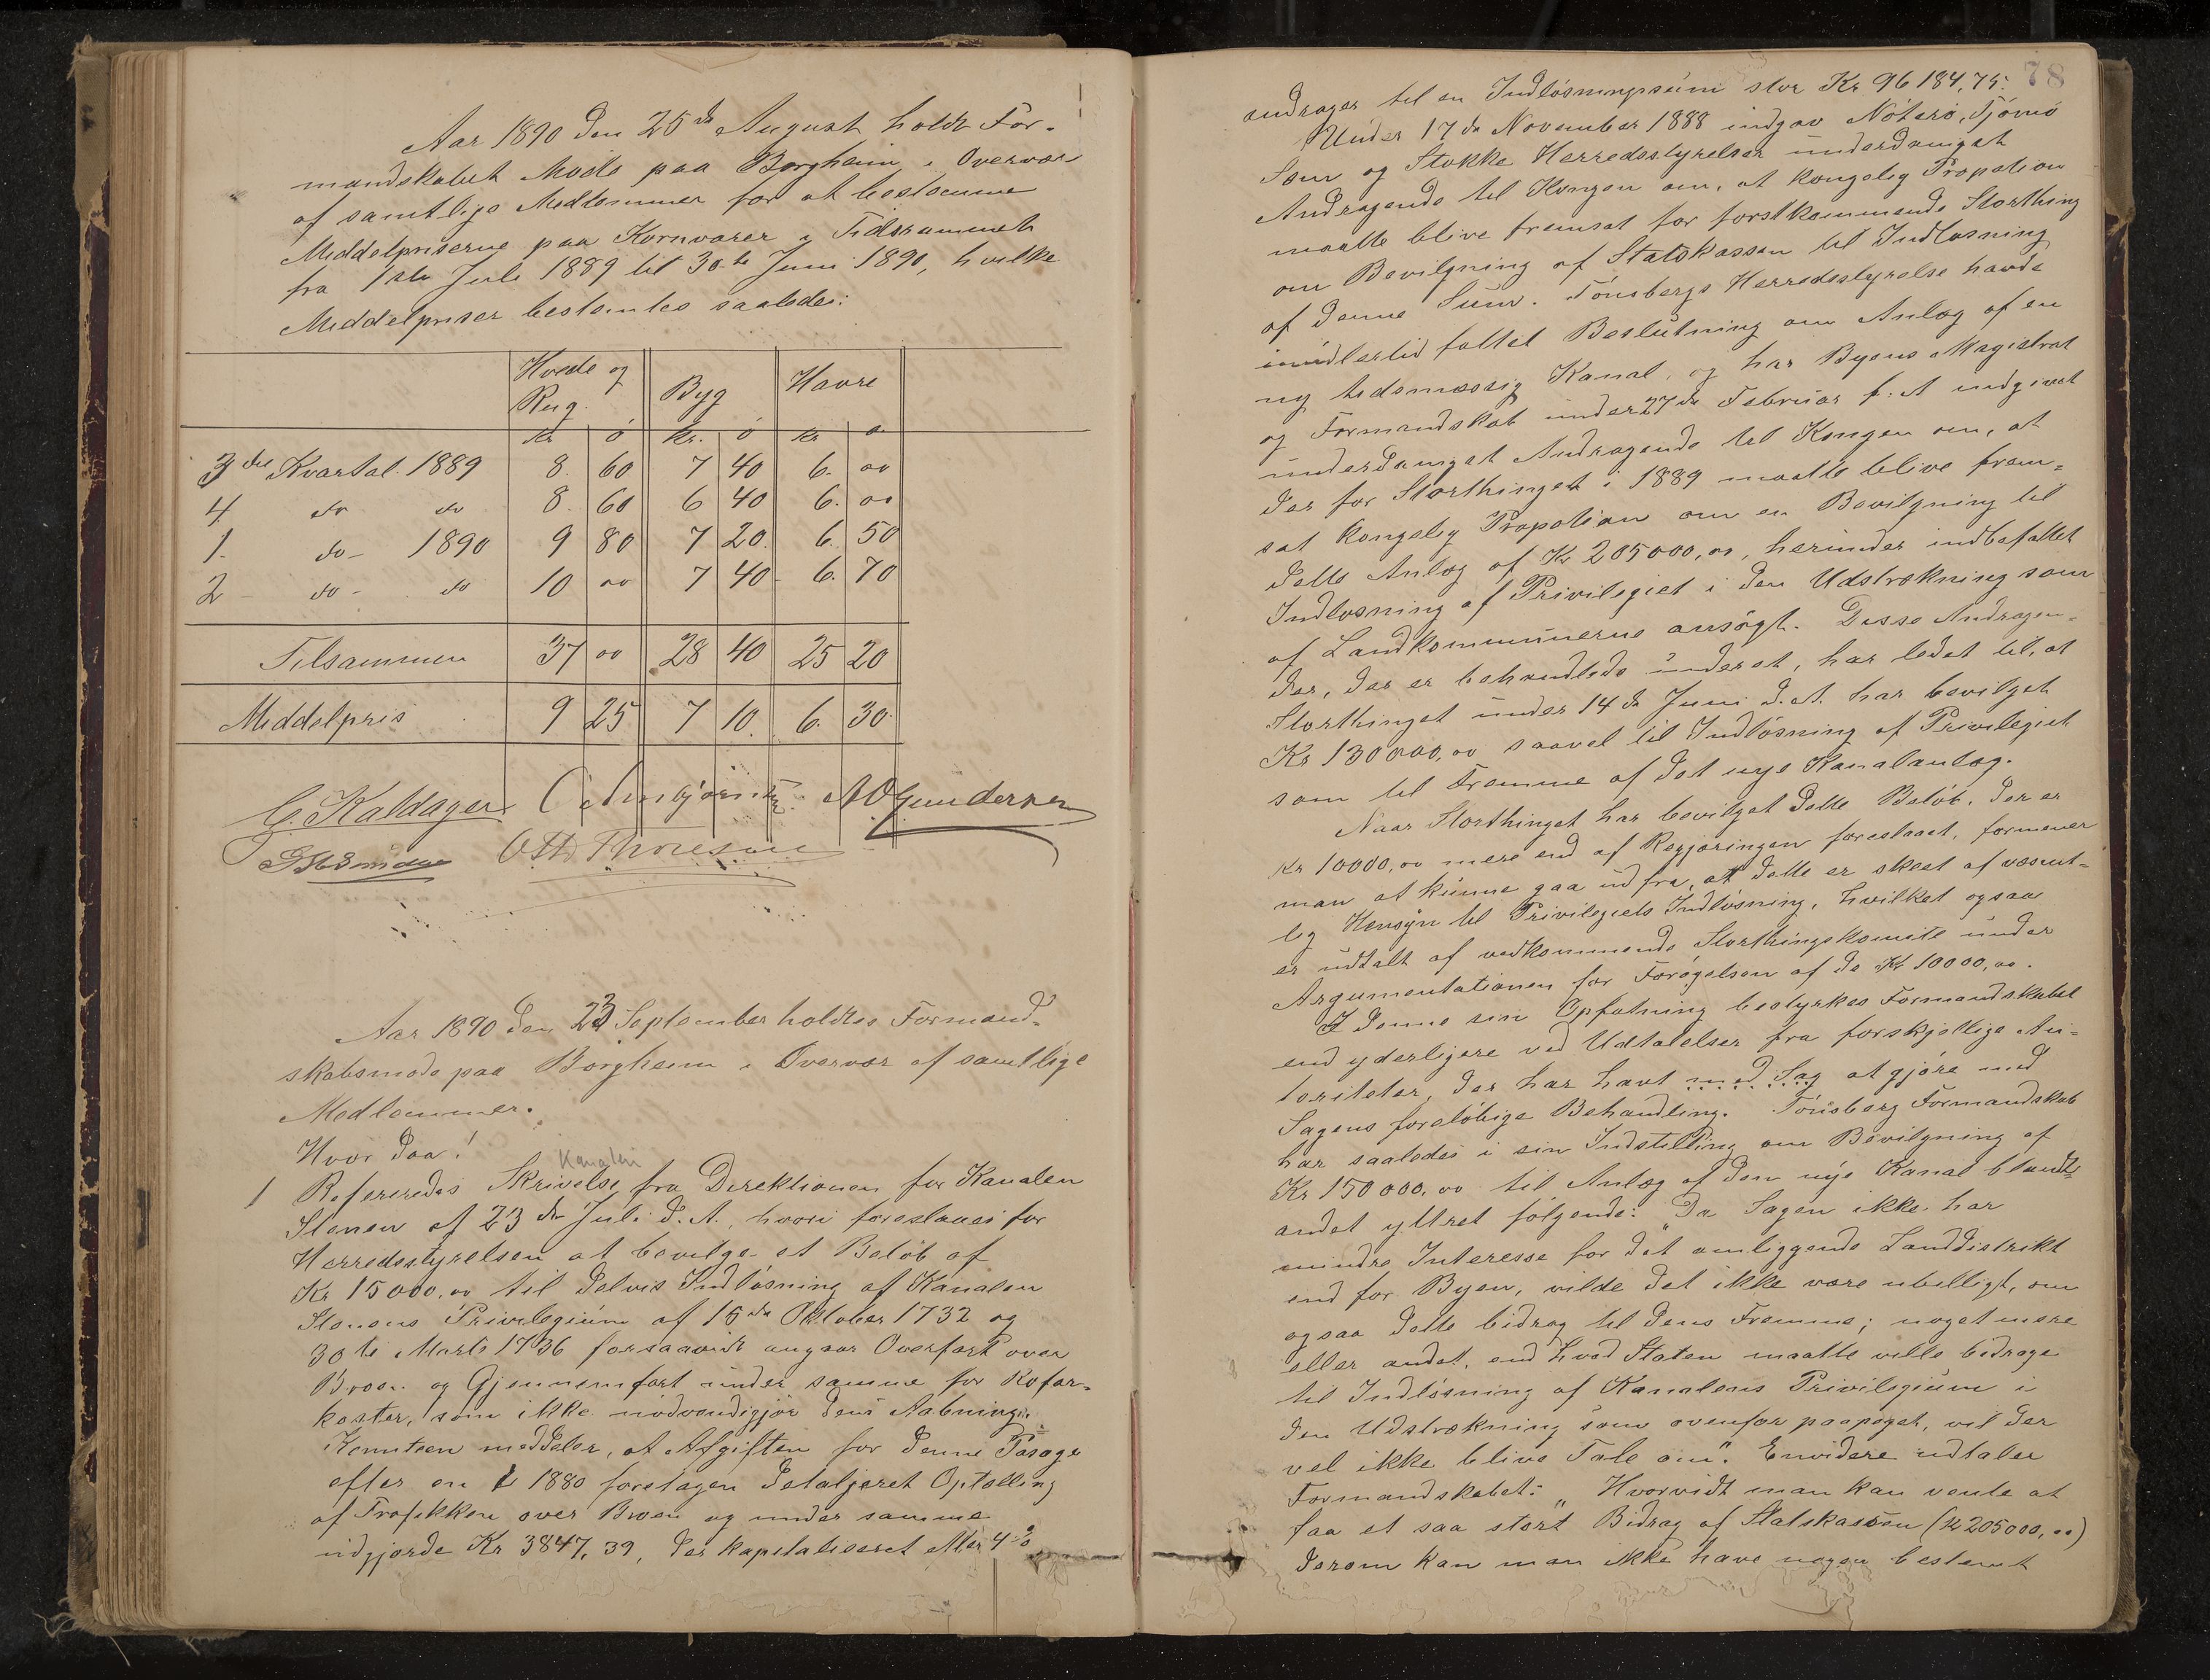 Aar 1890 den 25de August holdt For-
mandskabet Møde paa Borgheim i Overvær
af samtlige Medlemmer for at bestemme
Middelpriserne paa Kornvarer i Tidsrummet
fra 1ste Juli 1889 til 30te Juni 1890, hvilke
Middelpriser bestemtes saaledes:
Hvede og Rug. Byg Havre
Kr ø kr. ø kr ø
3die Kvartal 1889 8. 60 7 40 6. 00
4 do do 8. 60 6 40 6. 00
1. do- 1890 9 80 7 20. 6. 50
2 - do - do 10 00 7 40 - 6. 70
Tilsammen 37 00 28 40 25 20
Middelpris 9 25 7 10. 6. 30
C. Kaldager AO Gundersen
Otto Thoresen
Aar 1890 den 23 September holdtes Formand-
skabsmøde paa Borgheim i Overvær af samtlige
Medlemmer.
Hvor da!
Kanalen
1 Refereredes Skrivelse fra Direktionen for Kanalen
Stenen af 23de Juli d. A., hvori foreslaaes for
Herredsstyrelsen at bevilge et Beløb af
Kr 15000,00 til delvis Indløsning af Kanalen
Stenens Privilegium af 15de Oktober 1732 og
30te Marts 1736 forsaavidt angaar Overfart over
Broen og Gjennemfart under samme for Kofar-
koster, som ikke nødvendiggjør dens Aabning.
Komiteen meddeler, at Afgiften for denne Pasage
efter en i 1880 foretagen detaljeret Optælling
af Trafikken over Broen og under samme
udgjorde Kr 3847,39, der kapitaliseret efter 4 %
78
andrager til en Indløsningssum stor Kr 96184,75.
Under 17de November 1888 indgav Nøterø, Tjømø
Sem og Stokke Herredsstyrelser underdanigst
Andragende til Kongen om, at kongelig Proposition
maatte blive fremsat for førstkommende Storthing
om Bevilgning af Statskassen til Indløsning
af denne Sum. Tønsbergs Herredsstyrelse havde
imidlertid fattet Beslutning om Anlæg af en
ny tidsmæssig Kanal, og har Byens Magistrat
og Formandskab under 27de Februar f. A indgivet
underdanigst Andragende til Kongen om, at
der for Storthinget i 1889 maatte blive frem-
sat kongelig Proposition om en Bevilgning til
dette Anlæg af Kr 205000,00, herunder indbefattet
Indløsning af Privilegiet i den Udstrækning som
af Landkommunerne ansøgt. Disse Andragen-
der, der er behandlede underet, har ledet til, at
Storthinget under 14de Juni d. A. har bevilget
Kr 130000,00 saavel til Indløsning af Privilegiet
som til Fremme af det nye Kanalanlæg.
Naar Storthinget har bevilget dette Beløb, der er
Kr 10000,00 mere end af Regjeringen foreslaaet, formener
man at kunne gaa ud fra, at dette er skeet af væsent-
lig Hensyn til Privilegiets Indløsning, hvilket ogsaa
er udtalt af vedkommende Storthingskomite under
Argumentationen for Forøgelsen af de Kr 10000,00.
I denne sin Opfatning bestyrkes Formandskabet
end yderligere ved Udtalelser fra forskjellige Au-
toriteter, der har havt med Sag at gjøre med
Sagens foreløbige Behandling. Tønsberg Formandskab
har saaledes i sin Indstilling om Bevilgning af
Kr 150000,00 til Anlæg af den nye Kanal blandt
andet yttret følgende: "Da Sagen ikke har
mindre Interesse for det omliggende Landdistrikt
end for Byen, vilde det ikke være ubilligt, om
ogsaa dette bidrog til dens Fremme; noget mere
eller andet, end hvad Staten maatte ville bidrage
til Indløsning af Kanalens Privilegium i
den Udstrækning som ovenfor paapeget, vil der
vel ikke blive Tale om". Envidere udtaler
Formandskabet: "Hvorvidt man kan vente at
faa et saa stort Bidrag af Statskassen (Kr 205000,00)
derom kan man ikke have nogen bestemt